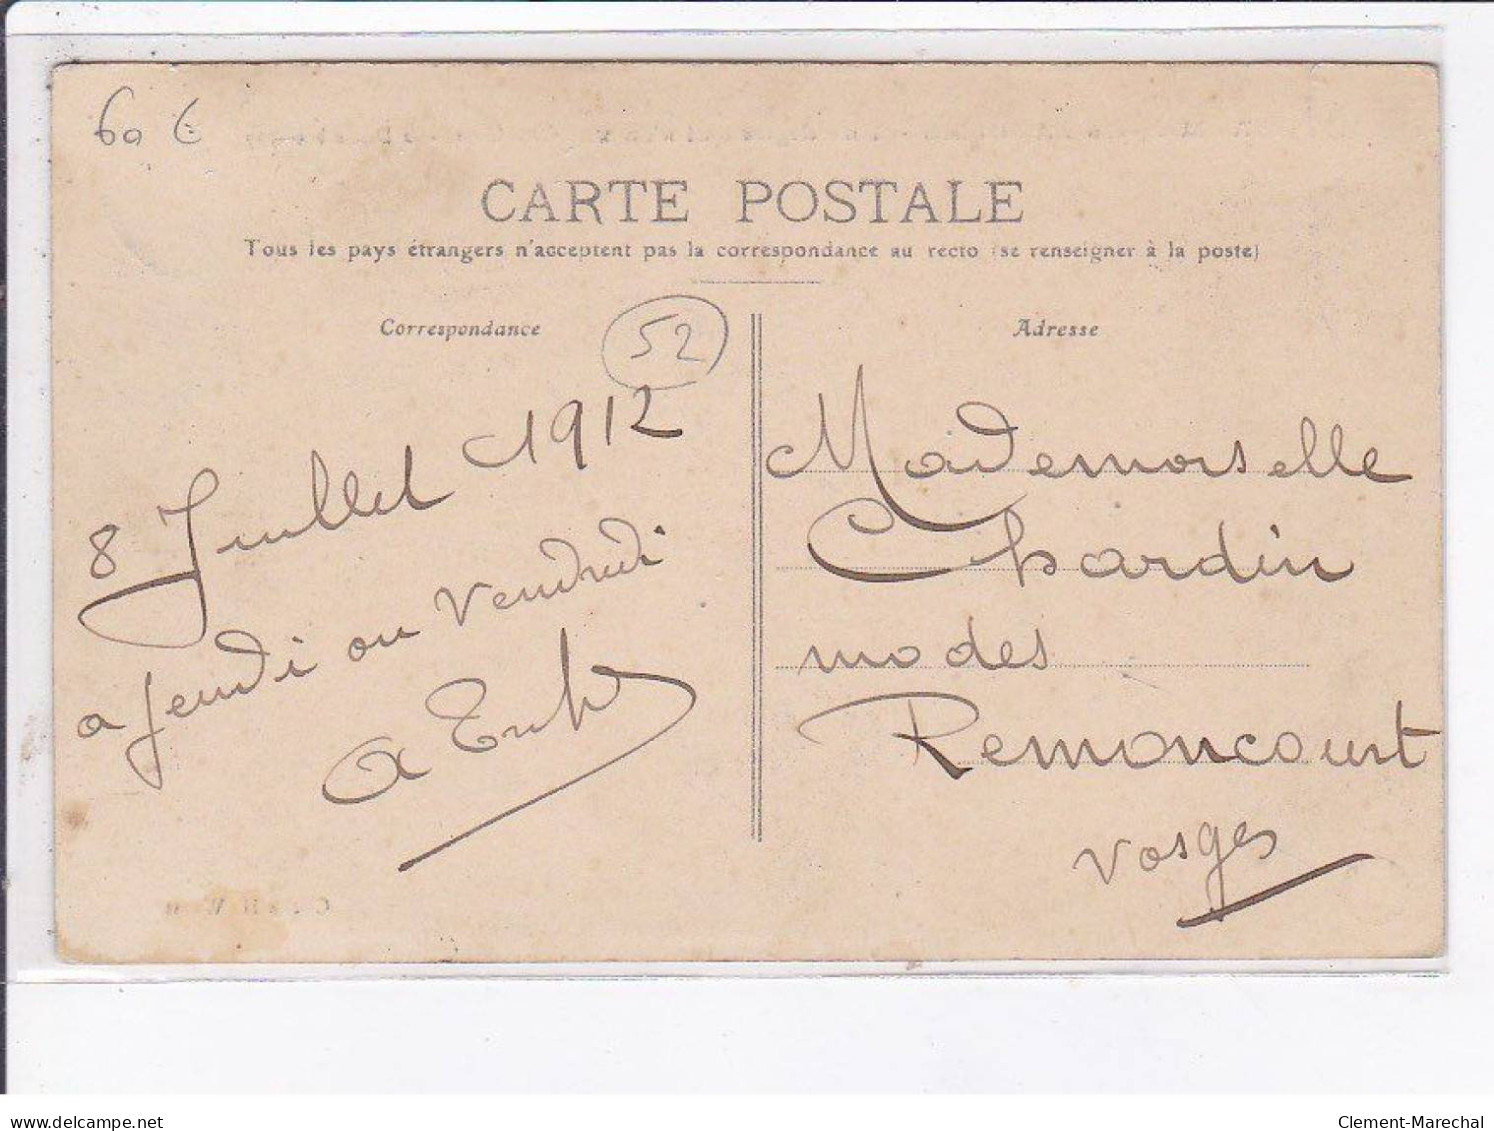 60 €
CARTE POSTALE
Tous les pays étrangers n'acceptent pas la correspondance au recto (se renseigner à la poste)
Correspondance
52
8 Juillet 1912
a Jeudi ou Vendredi
Adresse
Mademoiselle
Chardin
modes
Remoncourt
Vosges
delcampe.net
Clement-Marechal